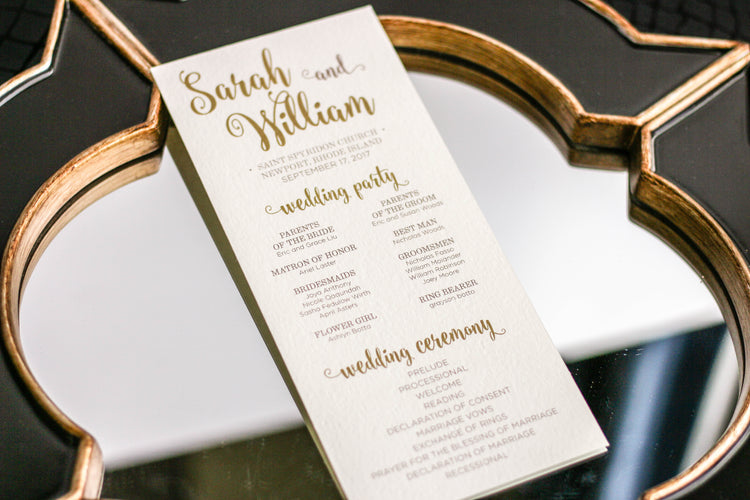 Sarah and
William
SAINT SPYRIDON CHURCH
NEWPORT, RHODE ISLAND
SEPTEMBER 17, 2017
wedding party
PARENTS
OF THE BRIDE
Eric and Grace Liu
MATRON OF HONOR
Ariel Laster
BRIDESMAIDS
Joya Anthony
Nicole Qadundah
Sasha Fedulow Wirth
April Astefs
FLOWER GIRL
Ashlyn Botta
PARENTS
OF THE GROOM
Eric and Susan Woods
BEST MAN
Nicholas Woods
GROOMSMEN
Nicholas Fasso
William Molander
William Robinson
Joey Moore
RING BEARER
grayson botta
wedding ceremony
PRELUDE
PROCESSIONAL
WELCOME
READING
DECLARATION OF CONSENT
MARRIAGE VOWS
EXCHANGE OF RINGS
PRAYER FOR THE BLESSING OF MARRIAGE
DECLARATION OF MARRIAGE
RECESSIONAL